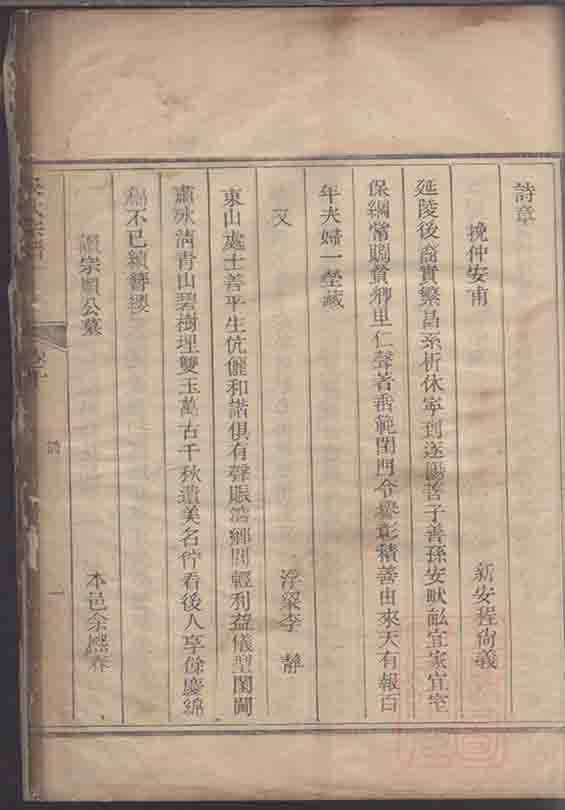 詩章
挽仲安甫
新安程尚義
延陵後裔實繁昌系析休寧到遂陽哲子善孫安畎畝宜家宜室
保綱常賙貧鄉里仁聲著垂範閨門令譽彰積善由來天有報百
年夫婦一塋藏
又
浮梁李靜
東山處士善平生伉儷和諧俱有聲賑濟鄉閭輕利益儀型閨閫
肅冰淸青山碧樹埋雙玉萬古千秋遺美名佇看後人享餘慶綿
綿不已續簪纓
宗順公墓
本邑余熙春
卷九
詩
一